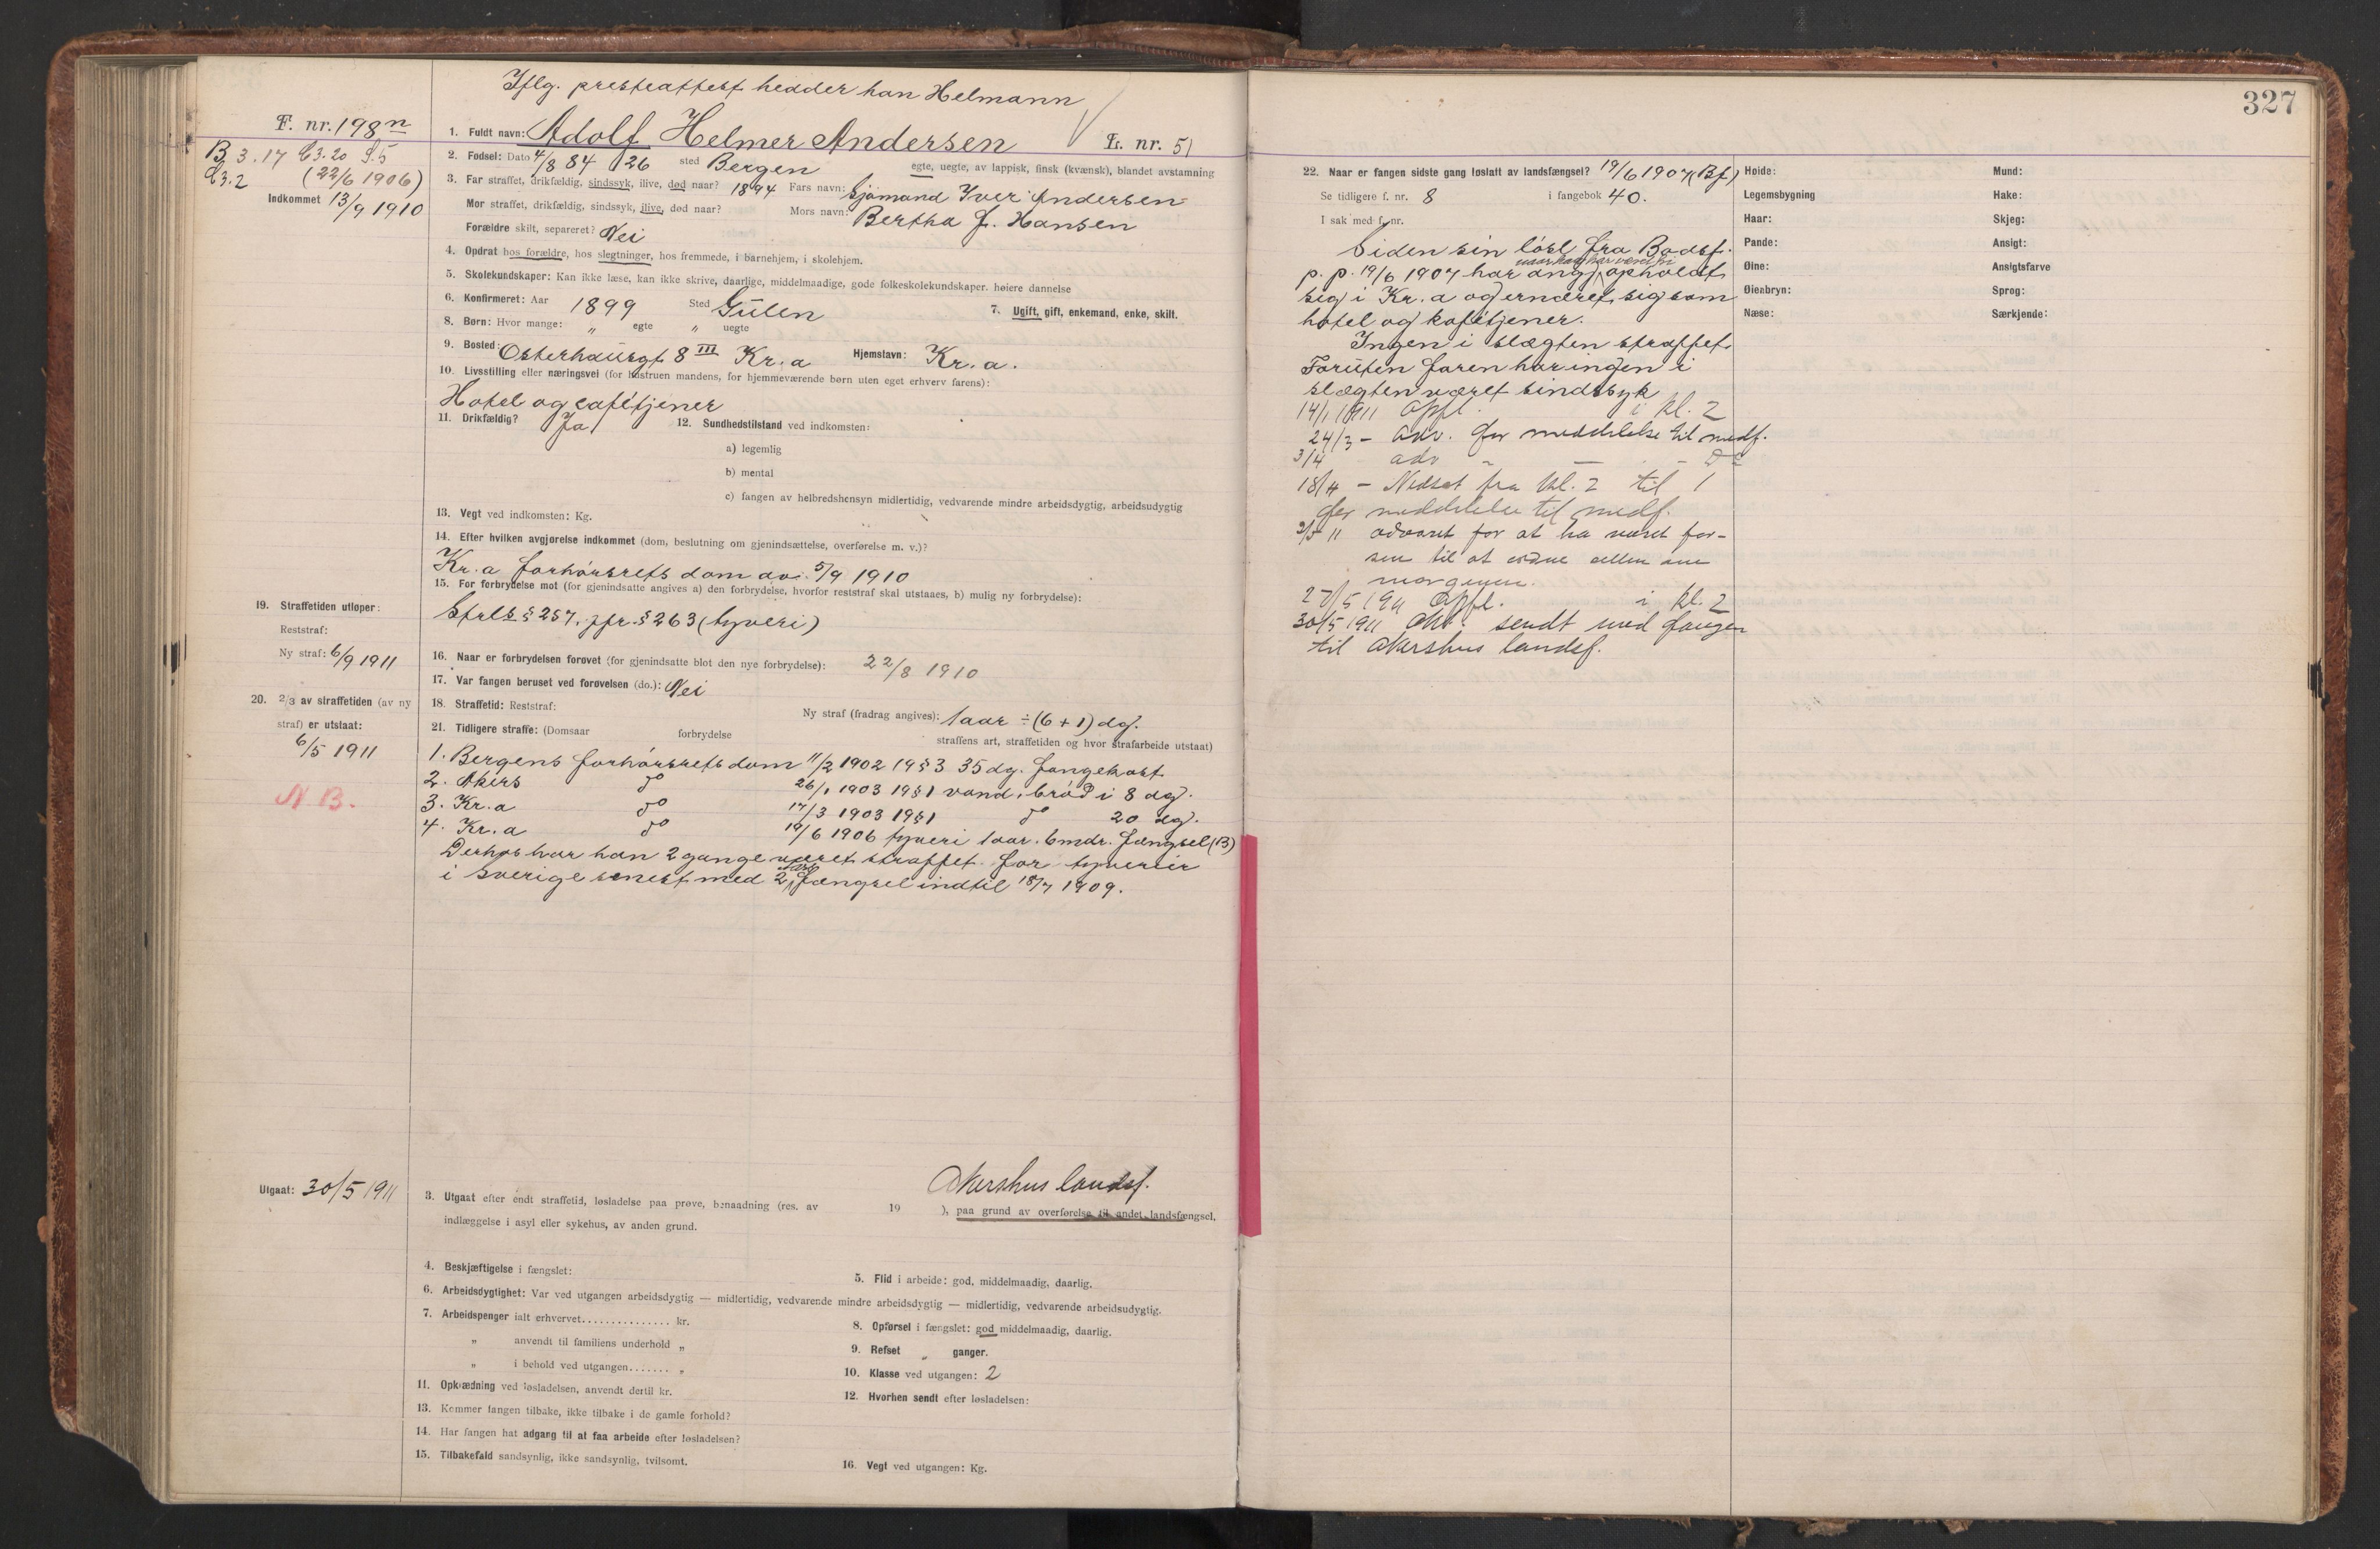 Iflg. presteattest hedder han Helmann
F. nr. 198n
1. Fuldt navn: Adolf Helmer Andersen L. nr. 51
B 3. 17 C 3. 20 S. 5
C 3. 2 (22/6 1906)
Indkommet 13/9 1910
2. Fødsel: Dato 4/8 84 26 sted Bergen egte, uegte, av lappisk, finsk (kvænsk), blandet avstamning
3. Far straffet, drikfældig, sindssyk, ilive, død naar? 1894 Fars navn: Sjømand Iver Andersen
Mor straffet, drikfældig, sindssyk, ilive, død naar? Mors navn: Bertha J. Hansen
Forældre skilt, separeret? Nei
4. Opdrat hos forældre, hos slegtninger, hos fremmede, i barnehjem, i skolehjem.
5. Skolekundskaper: Kan ikke læse, kan ikke skrive, daarlige, middelmaadige, gode folkeskolekundskaper. høiere dannelse
6. Konfirmeret: Aar 1899 Sted Gulen 7. Ugift, gift, enkemand, enke, skilt.
8. Børn: Hvor mange: „ egte „ uegte
9. Bosted: Osterhausgt 8 III Kr.a Hjemstavn: Kr.a.
10. Livsstilling eller næringsvei (for hustruen mandens, for hjemmeværende børn uten eget erhverv farens):
Hotel og cafétjener
11. Drikfældig? Ja 12. Sundhedstilstand ved indkomsten:
a) legemlig
b) mental
c) fangen av helbredshensyn midlertidig, vedvarende mindre arbeidsdygtig, arbeidsudygtig
13. Vegt ved indkomsten: Kg.
14. Efter hvilken avgjørelse indkommet (dom, beslutning om gjenindsættelse, overførelse m. v.)?
Kr.a forhørsrets dom av 5/9 1910
15. For forbrydelse mot (for gjenindsatte angives a) den forbrydelse, hvorfor reststraf skal utstaaes, b) mulig ny forbrydelse):
Strls § 257, jfr. § 263 (tyveri)
19. Straffetiden utløper:
Reststraf:
Ny straf: 6/9 1911
16. Naar er forbrydelsen forøvet (for gjenindsatte blot den nye forbrydelse): 22/8 1910
17. Var fangen beruset ved forøvelsen (do.): Nei
20. 2/3 av straffetiden (av ny
straf) er utstaat:
6/5 1911
N. B.
18. Straffetid: Reststraf: Ny straf (fradrag angives): 1 aar ÷ (6 + 1) dg.
21. Tidligere straffe: (Domsaar forbrydelse straffens art, straffetiden og hvor strafarbeide utstaat)
1. Bergens forhørsrets dom 11/2 1902 19 § 3 35 dg. fangekost
2. Akers do 26/1 1903 19 § 1 vand, brød i 8 dg.
3. Kr.a do 17/3 1903 19 § 1 do 20 dg.
4. Kr.a do 19/6 1906 tyveri 1 aar. 6 mdr. fængsel (B)
Derhos har han 2 gange været straffet for tyverier
i Sverige senest med 2 aars fængsel indtil 18/7 1909.
Utgaat: 30/5 1911
Akershus landsf.
3. Utgaat efter endt straffetid, løsladelse paa prøve, benaadning (res. av 19 ), paa grund av overførelse til andet landsfængsel,
indlæggelse i asyl eller sykehus, av anden grund.
4. Beskjæftigelse i fængslet:
5. Flid i arbeide: god, middelmaadig, daarlig.
6. Arbeidsdygtighet: Var ved utgangen arbeidsdygtig — midlertidig, vedvarende mindre arbeidsdygtig — midlertidig, vedvarende arbeidsudygtig.
7. Arbeidspenger ialt erhvervet............... kr.
8. Opførsel i fængslet: god middelmaadig, daarlig.
„ anvendt til familiens underhold „
9. Refset „ ganger.
„ i behold ved utgangen....... „
10. Klasse ved utgangen: 2
11. Opklædning ved løsladelsen, anvendt dertil kr.
12. Hvorhen sendt efter løsladelsen:
13. Kommer fangen tilbake, ikke tilbake i de gamle forhold?
14. Har fangen hat adgang til at faa arbeide efter løsladelsen?
15. Tilbakefald sandsynlig, ikke sandsynlig, tvilsomt.
16. Vegt ved utgangen: Kg.
327
22. Naar er fangen sidste gang løslatt av landsfængsel? 19/6 1907 (Bf)
Se tidligere f. nr. 8 i fangebok 40.
I sak med f. nr.
Siden sin løsl. fra Bodsf.
p. p. 19/6 1907 har ang. naar han har været fri opholdt
sig i Kr.a og ernæret sig som
hotel og kafétjener.
Ingen i slægten straffet.
Foruten faren har ingen i
slægten været sindssyk
14/1 1911 Opfl. i kl. 2
24/3 – Adv. for meddelelse til medf.
3/4 adv „ — – do
18/4 – Nedsat fra kl. 2 til 1
for meddelelse til medf.
3/5 11 advaret for at ha været for-
sen til at ordne cellen om
morgenen.
27/5 1911 Opfl. i kl. 2
30/5 1911 Akt. sendt med fangen
til Akershus landsf.
Høide: Mund:
Legemsbygning Hake:
Haar: Skjeg:
Pande: Ansigt:
Øine: Ansigtsfarve
Øienbryn: Sprog:
Næse: Særkjende: